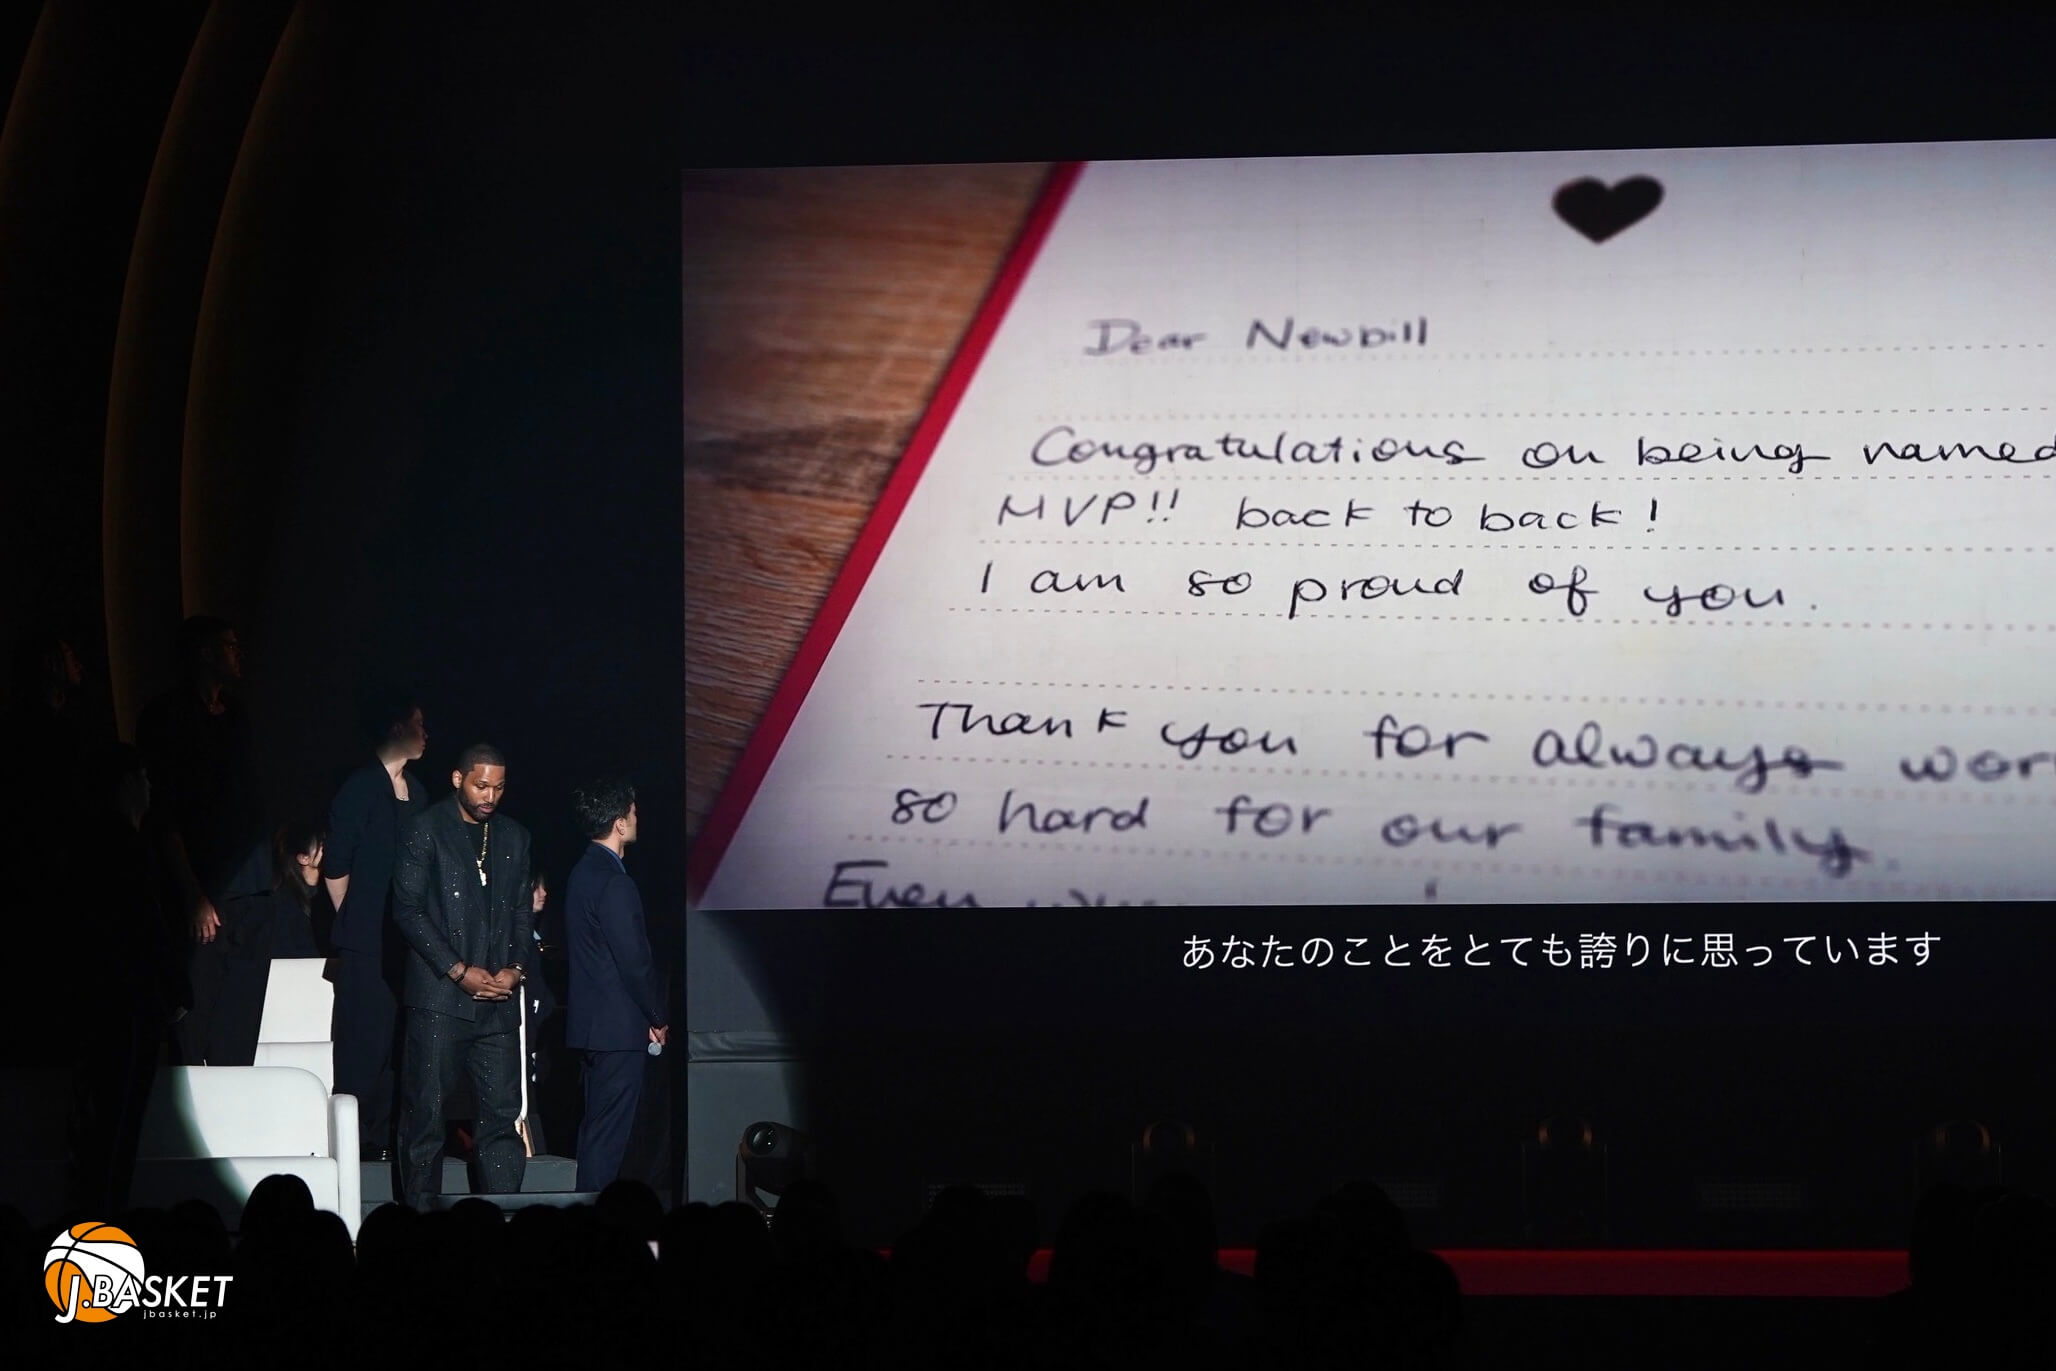 Dear Newbill
Congratulations on being named
MVP!! back to back!
I am so proud of you.
Thank you for always
so hard for our family.
Even
あなたのことをとても誇りに思っています
J.BASKET
jbasket.jp